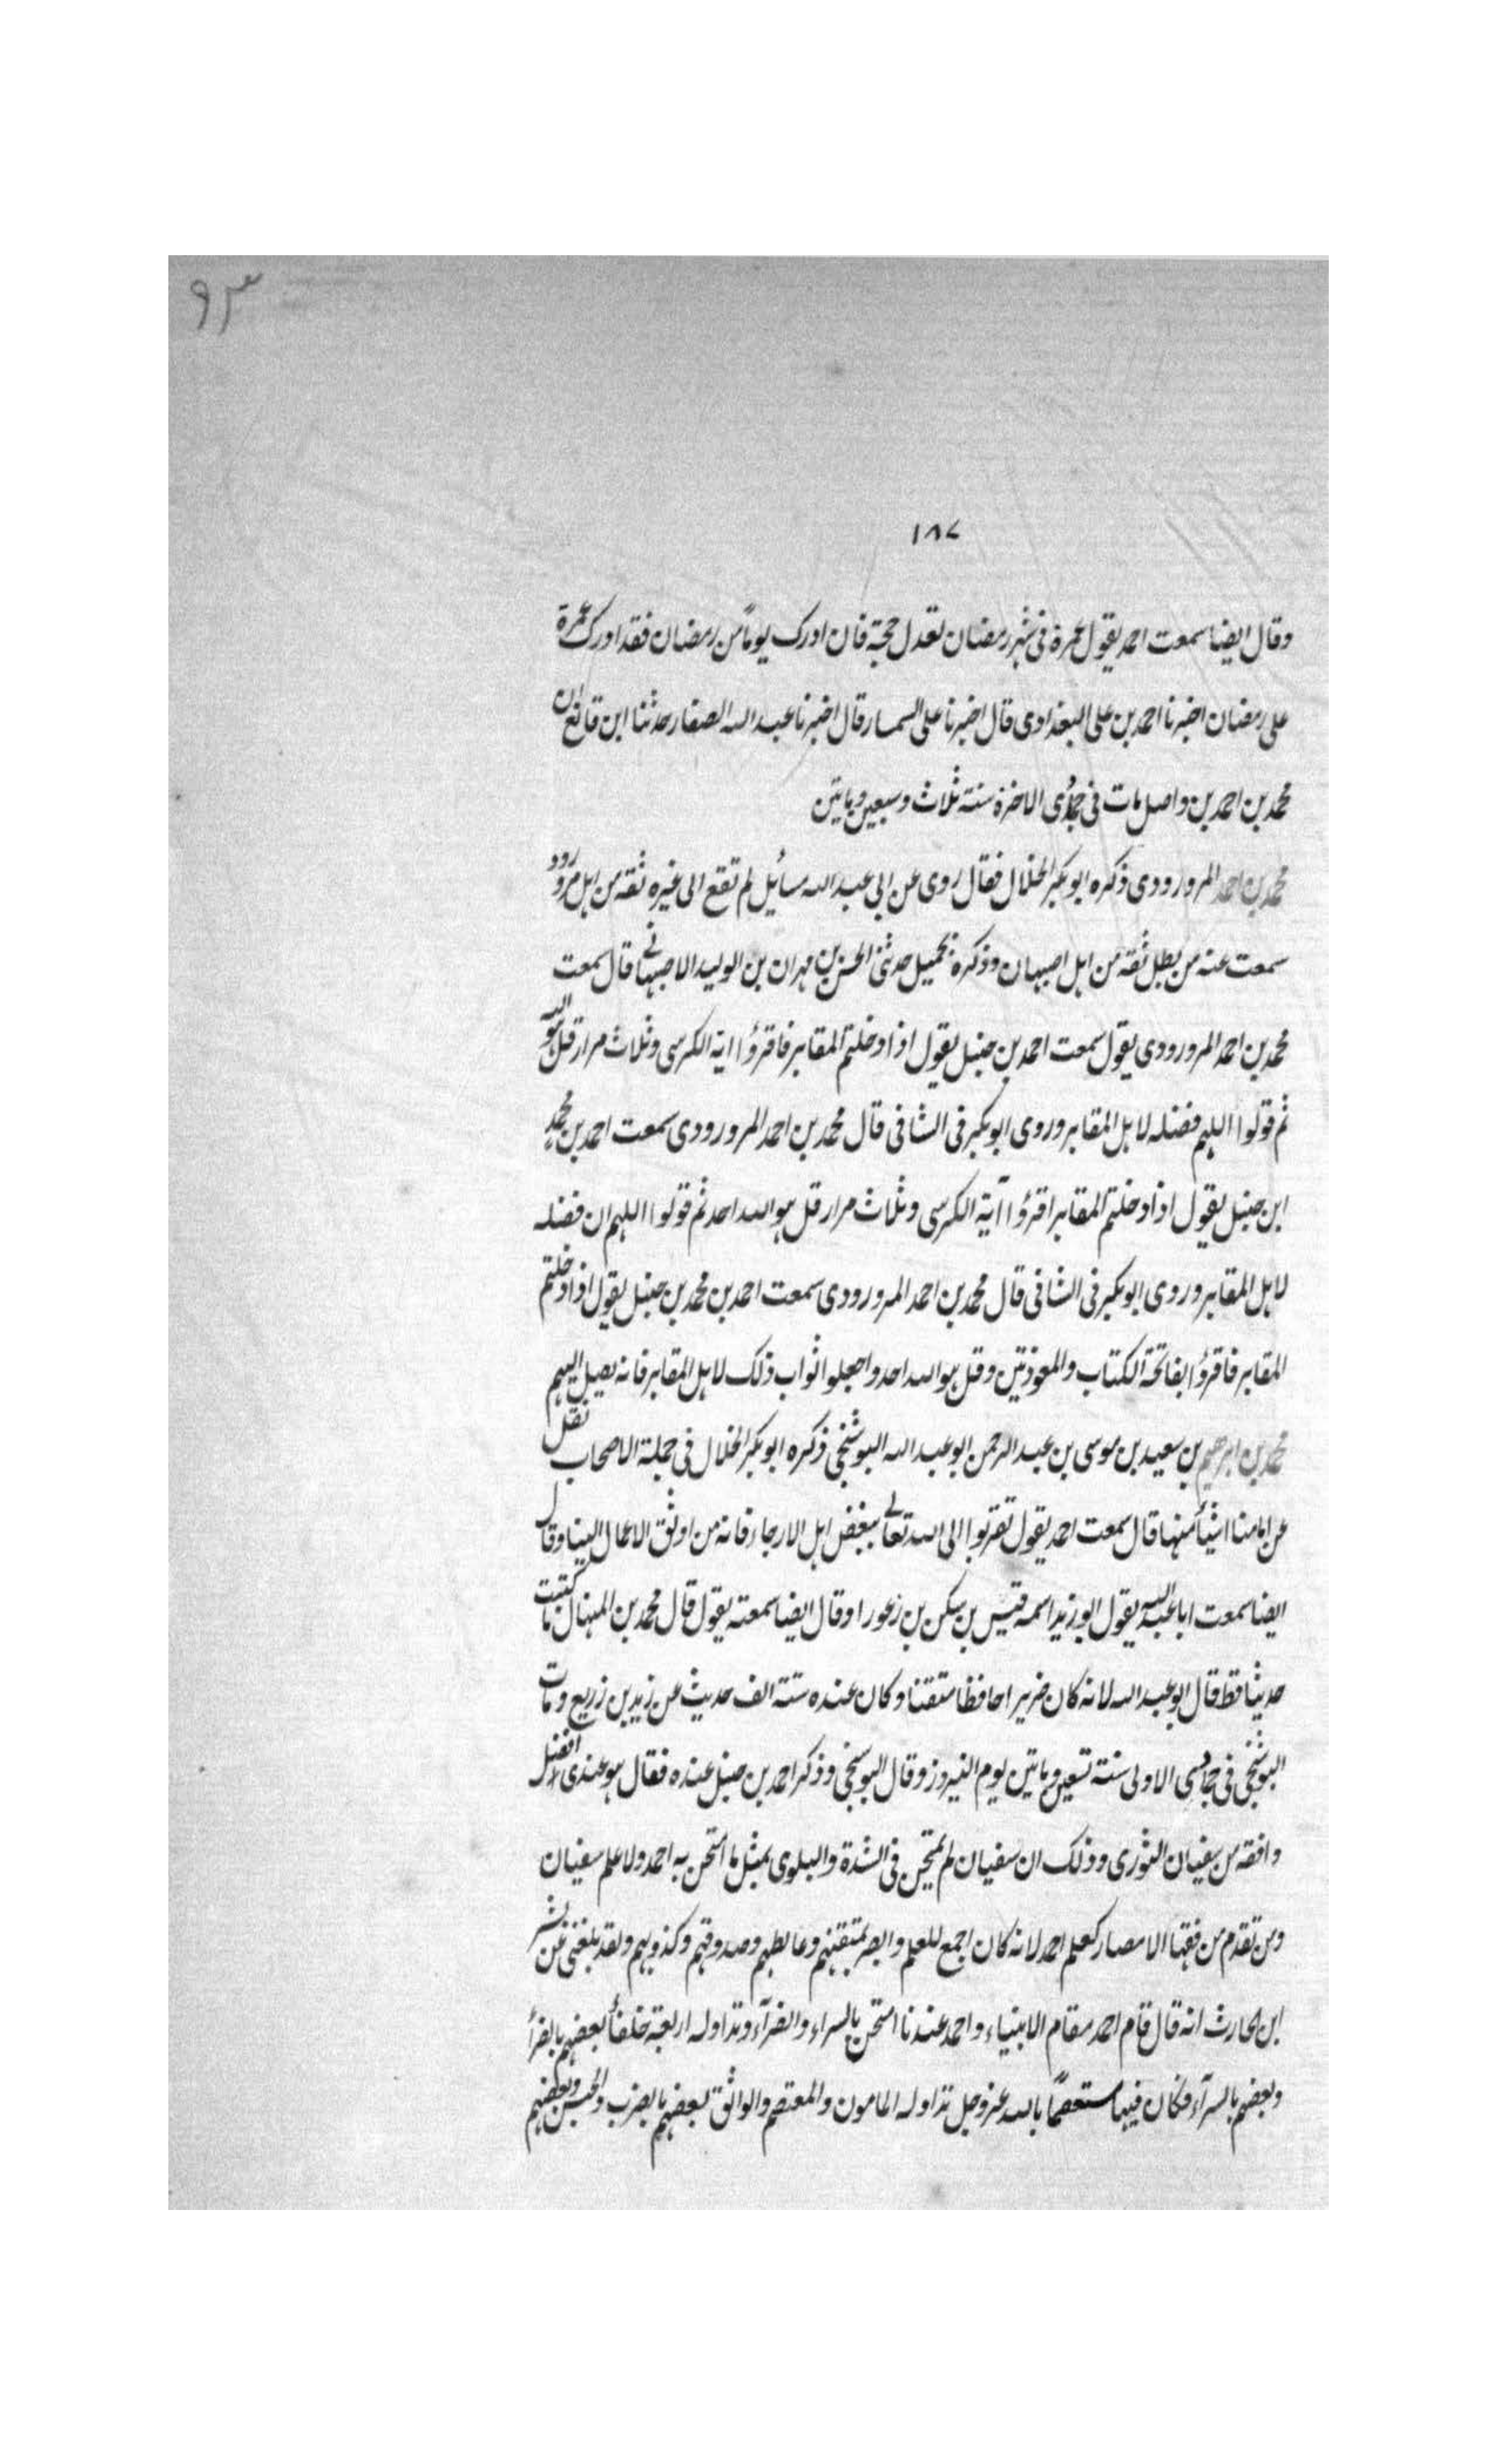 ٩٣
١٨٧
وقال ايضا سمعت احمد يقول عمرة فى شهر رمضان تعدل حجة فان ادرك يوماً من رمضان فقد ادرك عمرة
على رمضان اخبرنا احمد بن على البغدادى قال اخبرنا على السمسار قال اخبرنا عبد الله الصفار حدثنا ابن قانع ان
محمد بن احمد بن واصل مات فى جمادى الاخرة سنة ثلاث وسبعين وماتين
محمد بن احمد المرورودى ذكره ابو بكر الخلال فقال روى عن ابى عبد الله مسائيل لم تقع الى غيره ثقة من اهل مرورود
سمعت عنه من بطل ثقة من اهل اصبهان وذكره بجميل حدثنى الحسن بن مهران بن الوليد الاصبهانى قال سمعت
محمد بن احمد المرورودى يقول سمعت احمد بن حنبل يقول اذا دخلتم المقابر فاقرؤا اية الكرسى وثلاث مرار قل هو الله
ثم قولوا اللهم فضله لاهل المقابر وروى ابو بكر فى الشافى قال محمد بن احمد المرورودى سمعت احمد بن محمد
ابن حنبل يقول اذا دخلتم المقابر اقرؤا آية الكرسى وثلاث مرار قل هو الله احد ثم قولوا اللهم ان فضله
لاهل المقابر وروى ابو بكر فى الشافى قال محمد بن احمد المرورودى سمعت احمد بن محمد بن حنبل يقول اذا دخلتم
المقابر فاقرؤا بفاتحة الكتاب والمعوذتين وقل هو الله احد واجعلوا ثواب ذلك لاهل المقابر فانه يصل اليهم
محمد بن ابرهيم بن سعيد بن موسى بن عبد الرحمن ابو عبد الله البوشنجى ذكره ابو بكر الخلال فى جملة الاصحاب نقل
عن امامنا اشيأ منها قال سمعت احمد يقول تقربوا الى الله تعالى ببغض اهل الارجاء فانه من اوثق الاعمال الينا وقال
ايضا سمعت ابا عبد الله يقول ابو زيد اسمه قيس بن سكن بن زعورا وقال ايضا سمعته يقول قال محمد بن المنهال ما كتبت
حديثا قط قال ابو عبد الله لانه كان ضريرا حافظا متقنا وكان عنده ستة الف حديث عن زيد بن زريع ومات
البوشنجى فى جمادى الاولى سنة تسعين وماتين يوم النيروز وقال البوسنجى وذكر احمد بن حنبل عنده فقال هو عندى افضل
وافقه من سفيان الثورى وذلك ان سفيان لم يمتحن فى الشدة والبلوى بمثل ما امتحن به احمد ولا علم سفيان
ومن تقدم من فقها الامصار كعلم احمد لانه كان اجمع للعلم وابصر بمتقنهم وغالطهم وصدوقهم وكذوبهم ولقد بلغنى عن بشر
ابن الحارث انه قال قام احمد مقام الانبياء واحمد عندنا امتحن بالسراء والضرآء وتداوله اربعة خلفأ بعضهم بالضرأ
وبعضهم بالسرآء فكان فيها مستعصمًا بالله عز وجل تداوله المامون والمعتصم والواثق بعضهم بالضرب والحبس وبعضهم